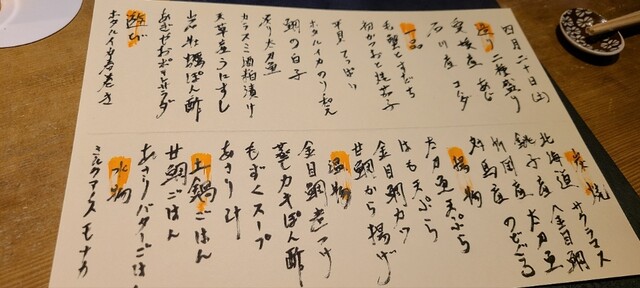 四月二十日(土)
造り 二種盛り
愛媛産 あじ
石川産
一品
毛蟹とすだち
初かつおと焼茄子
平貝 てっぱい
ホタルイカのり和え
鯛の白子
炙り太刀魚
カラスミ酒粕漬け
天草産うにすし
岩牡蠣ぽん酢
あぎやおポテトサラダ
ホタルイカ春巻き
炭焼
サクラマス
北海道 金目鯛
銚子産 太刀魚
対馬産 のどぐろ
揚物
太刀魚天ぷら
はも天ぷら
金目鯛カツ
甘鯛から揚げ
温物
金目鯛煮つけ
蒸カキぽん酢
もずくスープ
あさり汁
土鍋ごはん
甘鯛ごはん
あさりバターごはん
水物
ミルクアイスモナカ